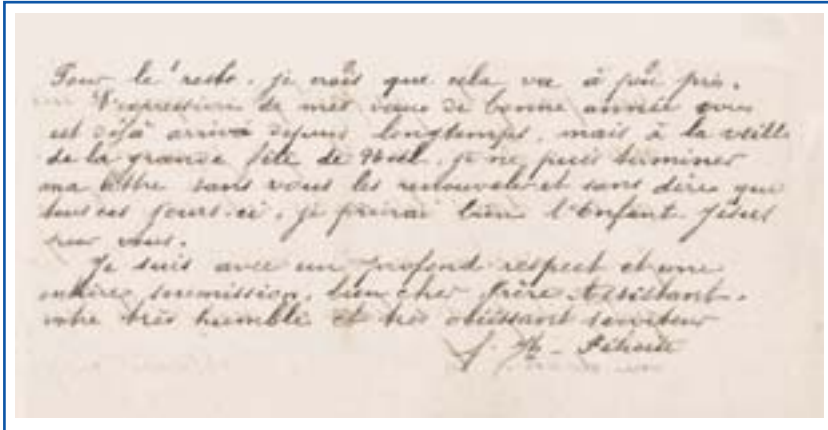 Pour le reste, je crois que cela va à peu près.
L'expression de mes vœux de bonne année vous
est déjà arrivé depuis longtemps, mais à la veille
de la grande fête de Noël, je ne puis terminer
ma lettre sans vous les renouveler et sans dire que
tous ces jours-ci, je prierai bien l'Enfant Jésus
pour vous.
Je suis avec un profond respect et une
entière soumission, bien cher frère Assistant,
votre très humble et très obéissant serviteur
f.